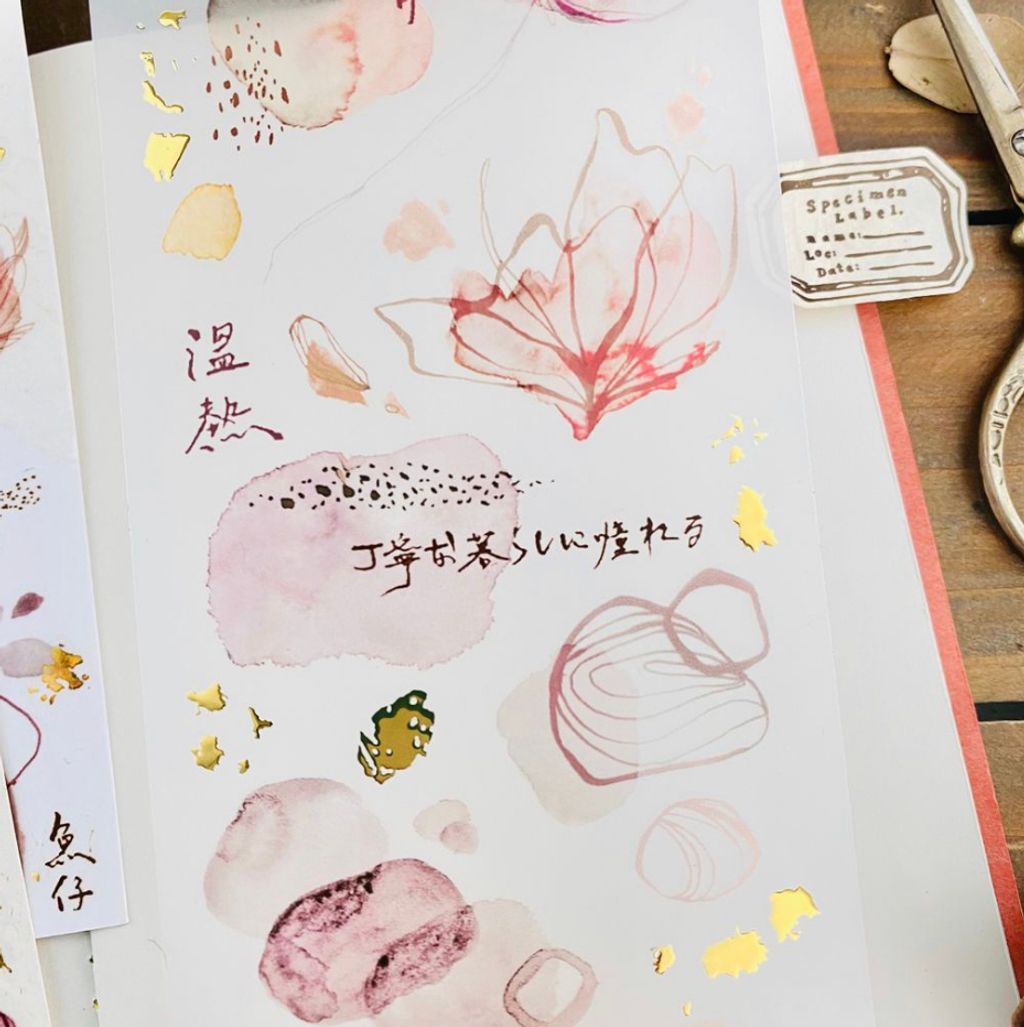 Specimen
Label.
Name:
Loc:
Date:
溫
熱
丁寧な暮らしに憧れる
魚
仔